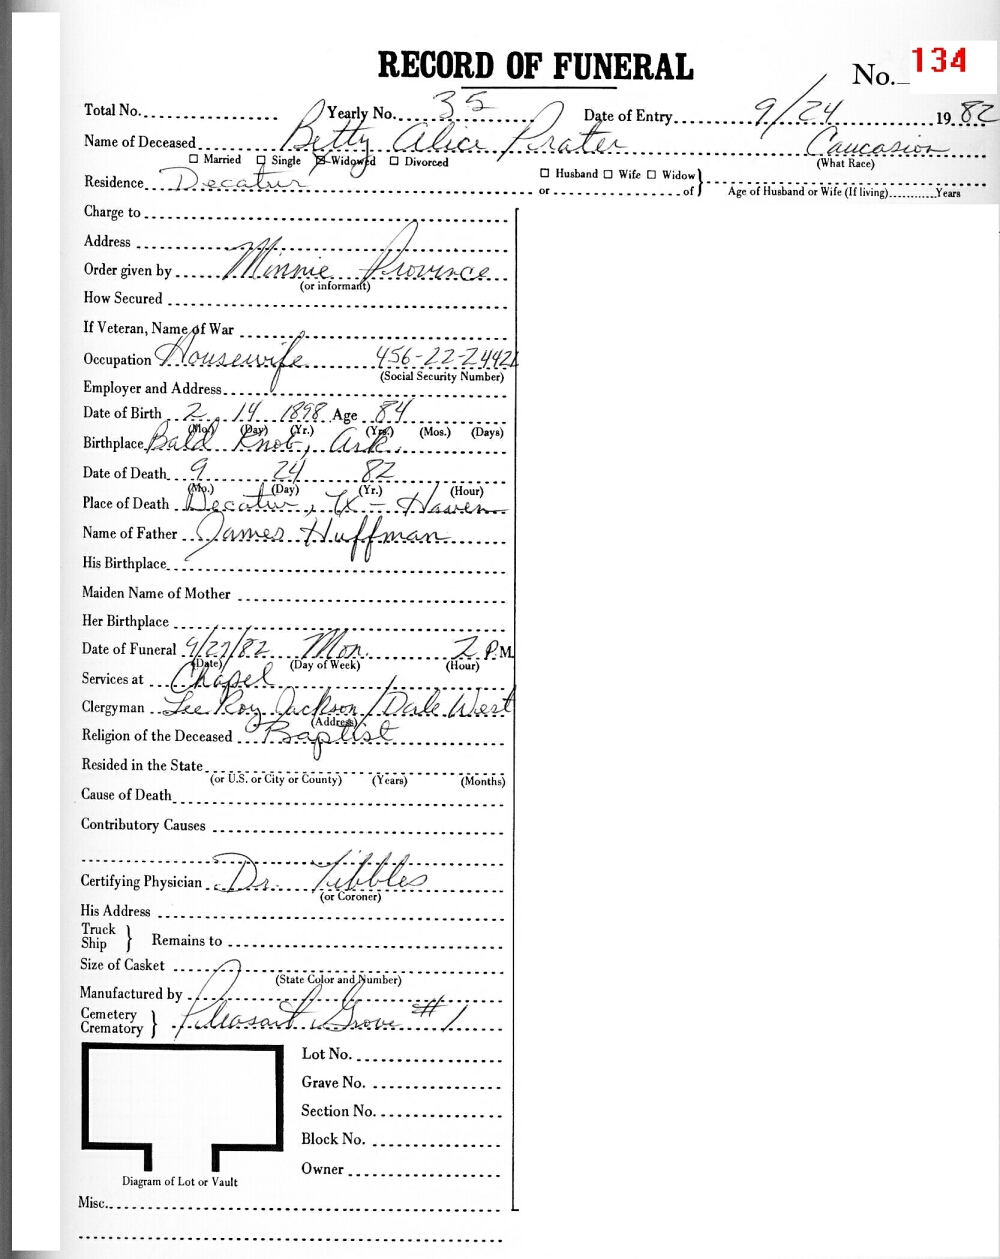 RECORD OF FUNERAL
No. 134
Total No. Yearly No. 35 Date of Entry 9/24 1982
Name of Deceased Betty Alice Prater Caucasion
☐ Married ☐ Single ☒ Widowed ☐ Divorced (What Race)
Residence Decatur ☐ Husband ☐ Wife ☐ Widow
or of Age of Husband or Wife (If living) Years
Charge to
Address
Order given by Minnie Province
(or informant)
How Secured
If Veteran, Name of War
Occupation Housewife 456-22-2442
(Social Security Number)
Employer and Address
Date of Birth 2 14 1898 Age 84
(Mo.) (Day) (Yr.) (Yrs.) (Mos.) (Days)
Birthplace Bald Knob, Ark.
Date of Death 9 24 82
(Mo.) (Day) (Yr.) (Hour)
Place of Death Decatur, Tx - Haven
Name of Father James Huffman
His Birthplace
Maiden Name of Mother
Her Birthplace
Date of Funeral 9/27/82 Mon. 2 P.M.
(Date) (Day of Week) (Hour)
Services at Chapel
Clergyman Lee Roy Jackson / Dale West
(Address)
Religion of the Deceased Baptist
Resided in the State
(or U.S. or City or County) (Years) (Months)
Cause of Death
Contributory Causes
Certifying Physician Dr. Tibbles
(or Coroner)
His Address
Truck
Ship } Remains to
Size of Casket
(State Color and Number)
Manufactured by
Cemetery
Crematory } Pleasant Grove #1
Lot No.
Grave No.
Section No.
Block No.
Owner
Diagram of Lot or Vault
Misc.